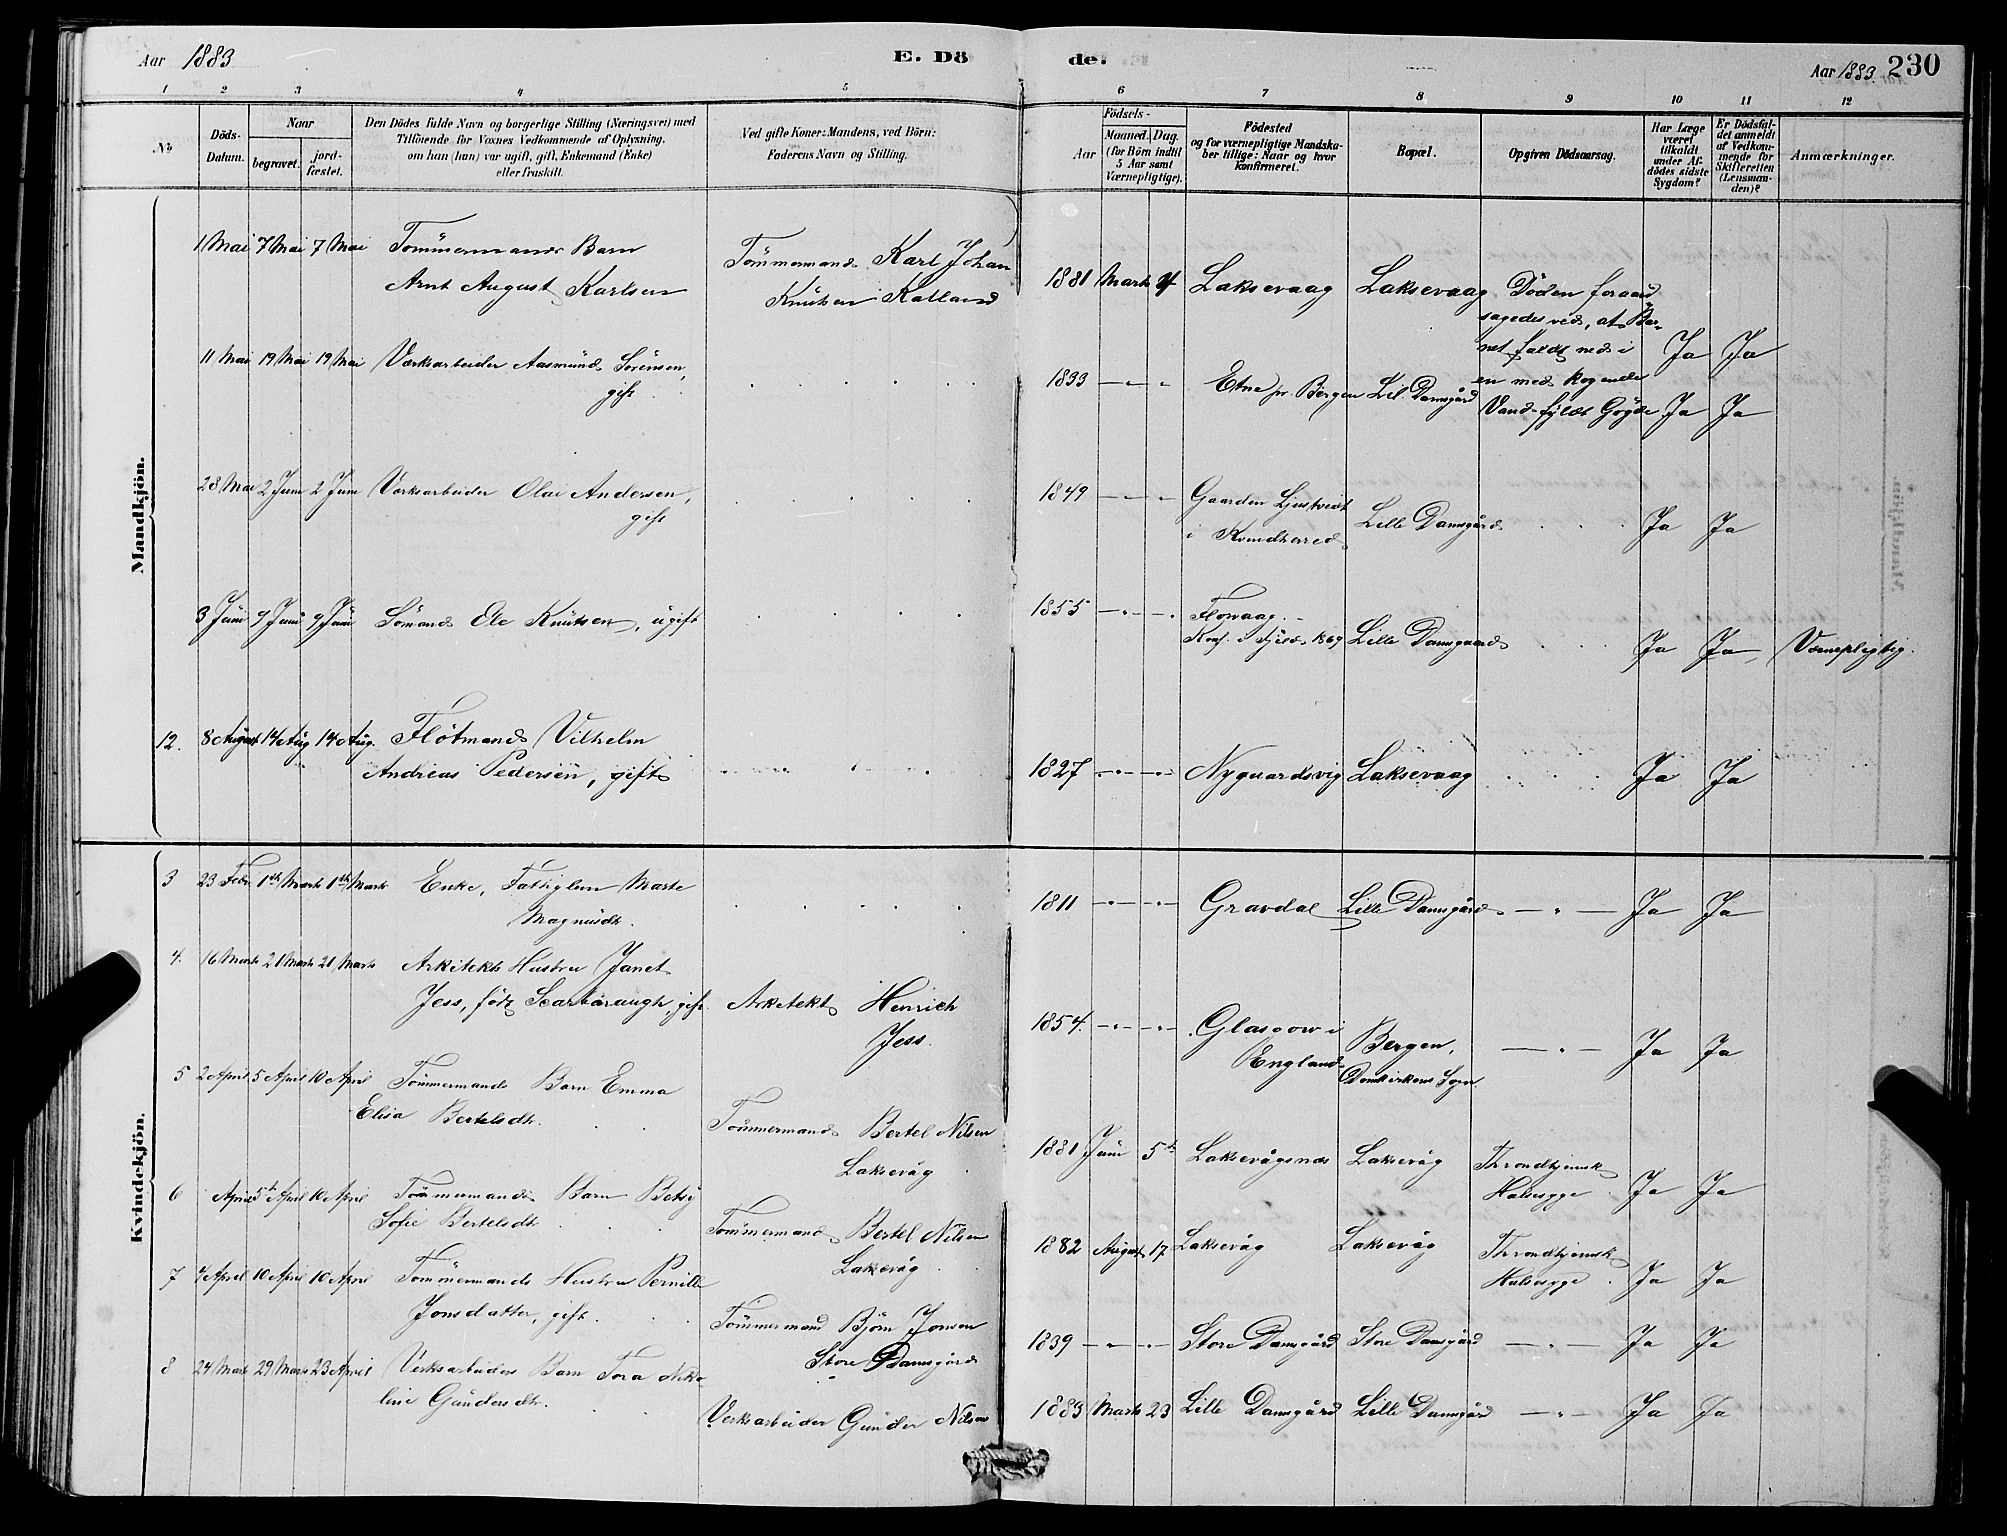 Aar 1883
E. Dö
de.
Aar 1883 230
1 2 3 4 5 6 7 8 9 10 11 12
No
Döds-
Datum.
Naar
begravet.
jord-
fæstet.
Den Dödes fulde Navn og borgerlige Stilling (Næringsvei) med
Tilföiende for Voxnes Vedkommende af Oplysning,
om han (hun) var ugift, gift, Enkemand (Enke)
eller fraskilt.
Ved gifte Koner: Mandens, ved Börn:
Faderens Navn og Stilling.
Födsels-
Aar
Maaned. Dag.
(for Börn indtil
5 Aar samt
Værnepligtige).
Födested
og for værnepligtige Mandska-
ber tillige: Naar og hvor
konfirmeret.
Bopæl.
Opgiven Dödsaarsag.
Har Læge
været
tilkaldt
under Af-
dödes sidste
Sygdom?
Er Dödsfal-
det anmeldt
af Vedkom-
mende for
Skifteretten
(Lensman-
den)?
Anmærkninger.
Mandkjön.
1 Mai 7 Mai 7 Mai Tömmermands Barn
Arnt August Karlsen
Tömmermand Karl Johan
Knutsen Kotland
1881 Marts 4 Laksevaag Laksevaag Döden foraar-
sagedes ved, at Bar-
net faldt ned i
en med kogende
Vand fyldt Gryde
Ja Ja
11 Mai 19 Mai 19 Mai Værksarbeider Aasmund Sörensen,
gift
1833 Etne pr. Bergen Lil. Damsgård Ja Ja
28 Mai 2 Juni 2 Juni Værksarbeider Olai Andersen,
gift
1849 Gaarden
i Kvindherred
Lille Damsgård Ja Ja
3 Juni 9 Juni 9 Juni Sömand Ole Knutsen, ugift
1855 Florvaag.
Konf. i Fjeld 1869
Lille Damsgaard Ja Ja Værnepligtig.
12. 8 August 14 Aug 14 Aug. Flötmand Vilhelm
Andreas Pedersen, gift
1827 Nygaardsvig Laksevaag Ja Ja
Kvindekjön.
3 23 Febr. 1ste Marts 1ste Marts Enke, Fattiglem Marte
Magnusdtr.
1811 Gravdal Lille Damsgård Ja Ja
4. 16 Marts 21 Marts 21 Marts Arkitekts Hustru Janet
Jess, född Scarbaraugh, gift
Arkitekt Henrich
Jess.
1854. Glasgow i
England
Bergen,
Domkirkens Sogn
Ja Ja
5 2 April 5 April 10 April Tömmermands Barn Emma
Elisa Bertelsdtr.
Tömmermand Bertel Nilsen
Laksevåg
1881 Juni 5te Laksevågsnæs Laksevåg Throndhjemsk
Halssyge. Ja Ja
6 April 5te April 10 April Tömmermands Barn Betsy
Sofie Bertelsdtr
Tömmermand Bertel Nilsen
Laksevåg
1882 August 17 Laksevåg Laksevåg Throndhjemsk
Halssyge. Ja Ja
7 4 April 10 April 10 April Tömmermands Hustru Pernille
Jonsdatter, gift.
Tömmermand Björn Jonsen
Store Damsgård
1839 Store Damsgård Store Damsgård Ja Ja
8 24 Marts 29 Marts 23 April Verksarbeiders Barn Tora Niko-
line Gundersdtr.
Verksarbeider Gunder Nilsen
1883 Marts 23 Lille Damsgård Lille Damsgård Ja Ja